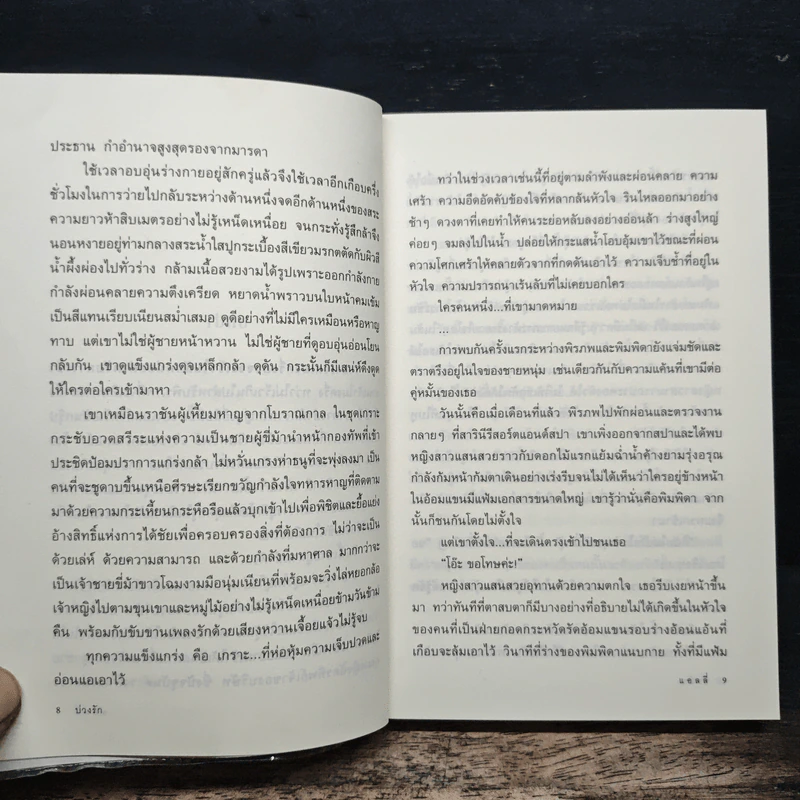 ประธาน กำอำนาจสูงสุดรองจากมารดา
ใช้เวลาอบอุ่นร่างกายอยู่สักครู่แล้วจึงใช้เวลาอีกเกือบครึ่ง
ชั่วโมงในการว่ายไปกลับระหว่างด้านหนึ่งจดอีกด้านหนึ่งของสระ
ความยาวห้าสิบเมตรอย่างไม่รู้เหน็ดเหนื่อย จนกระทั่งรู้สึกล้าจึง
นอนหงายอยู่ท่ามกลางสระน้ำใสปูกระเบื้องสีเขียวมรกตตัดกับผิวสี
น้ำผึ้งผ่องไปทั่วร่าง กล้ามเนื้อสวยงามได้รูปเพราะออกกำลังกาย
กำลังผ่อนคลายความตึงเครียด หยาดน้ำพราวบนใบหน้าคมเข้ม
เป็นสีแทนเรียบเนียนสม่ำเสมอ ดูดีอย่างที่ไม่มีใครเหมือนหรือหาญ
ทาบ แต่เขาไม่ใช่ผู้ชายหน้าหวาน ไม่ใช่ผู้ชายที่ดูอบอุ่นอ่อนโยน
กลับกัน เขาดูแข็งแกร่งดุจเหล็กกล้า ดุดัน กระนั้นก็มีเสน่ห์ดึงดูด
ให้ใครต่อใครเข้ามาหา
เขาเหมือนราชันผู้เหี้ยมหาญจากโบราณกาล ในชุดเกราะ
กระชับอวดสรีระแห่งความเป็นชายผู้ขี่ม้านำหน้ากองทัพที่เข้า
ประชิดป้อมปราการแกร่งกล้า ไม่หวั่นเกรงห่าธนูที่จะพุ่งลงมา เป็น
คนที่จะชูดาบขึ้นเหนือศีรษะเรียกขวัญกำลังใจทหารหาญที่ติดตาม
มาด้วยความกระเหี้ยนกระหือรือแล้วบุกเข้าไปเพื่อพิชิตและยื้อแย่ง
อ้างสิทธิ์แห่งการได้ชัยเพื่อครอบครองสิ่งที่ต้องการ ไม่ว่าจะเป็น
ด้วยเล่ห์ ด้วยความสามารถ และด้วยกำลังที่มหาศาล มากกว่าจะ
เป็นเจ้าชายขี่ม้าขาวโฉมงามมือนุ่มเนียนที่พร้อมจะวิ่งไล่หยอกล้อ
เจ้าหญิงไปตามขุนเขาและหมู่ไม้อย่างไม่รู้เหน็ดเหนื่อยข้ามวันข้าม
คืน พร้อมกับขับขานเพลงรักด้วยเสียงหวานเจื้อยแจ้วไม่รู้จบ
ทุกความแข็งแกร่ง คือ เกราะ...ที่ห่อหุ้มความเจ็บปวดและ
อ่อนแอเอาไว้
8 บ่วงรัก
ทว่าในช่วงเวลาเช่นนี้ที่อยู่ตามลำพังและผ่อนคลาย ความ
เศร้า ความอึดอัดคับข้องใจที่หลากล้นหัวใจ รินไหลออกมาอย่าง
ช้าๆ ดวงตาที่เคยทำให้คนระย่อหลับลงอย่างอ่อนล้า ร่างสูงใหญ่
ค่อยๆ จมลงไปในน้ำ ปล่อยให้กระแสน้ำโอบอุ้มเขาไว้ขณะที่ผ่อน
ความโศกเศร้าให้คลายตัวจากที่กดดันเอาไว้ ความเจ็บช้ำที่อยู่ใน
หัวใจ ความปรารถนาเร้นลับที่ไม่เคยบอกใคร
ใครคนหนึ่ง...ที่เขามาดหมาย
...
การพบกันครั้งแรกระหว่างพิรภพและพิมพิดายังแจ่มชัดและ
ตราตรึงอยู่ในใจของชายหนุ่ม เช่นเดียวกันกับความแค้นที่เขามีต่อ
คู่หมั้นของเธอ
วันนั้นคือเมื่อเดือนที่แล้ว พิรภพไปพักผ่อนและตรวจงาน
กลายๆ ที่สารินีรีสอร์ตแอนด์สปา เขาเพิ่งออกจากสปาและได้พบ
หญิงสาวแสนสวยราวกับดอกไม้แรกแย้มฉ่ำน้ำค้างยามรุ่งอรุณ
กำลังก้มหน้าก้มตาเดินอย่างเร่งรีบจนไม่ได้เห็นว่าใครอยู่ข้างหน้า
ในอ้อมแขนมีแฟ้มเอกสารขนาดใหญ่ เขารู้ว่านั่นคือพิมพิดา จาก
นั้นก็ชนกันโดยไม่ตั้งใจ
แต่เขาตั้งใจ...ที่จะเดินตรงเข้าไปชนเธอ
“โอ๊ะ ขอโทษค่ะ!”
หญิงสาวแสนสวยอุทานด้วยความตกใจ เธอรีบเงยหน้าขึ้น
มา ทว่าทันทีที่ตาสบตาก็มีบางอย่างที่อธิบายไม่ได้เกิดขึ้นในหัวใจ
ของคนที่เป็นฝ่ายกอดกระหวัดรัดอ้อมแขนรอบร่างอ้อนแอ้นที่
เกือบจะล้มเอาไว้ วินาทีที่ร่างของพิมพิดาแนบกาย ทั้งที่มีแฟ้ม
แชลลี่ 9